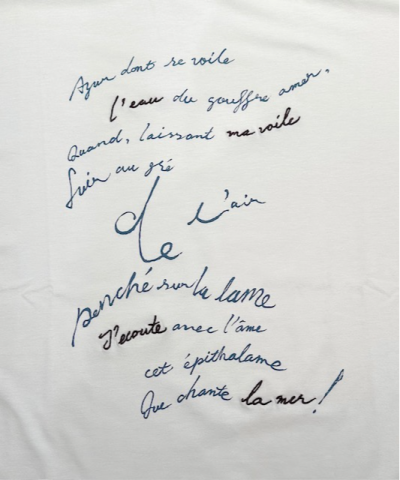 Azur dont se voile
l'eau du gouffre amer,
Quand, laissant ma voile
fuir au gré
de l'air
penché sur la lame
J'écoute avec l'âme
cet épithalame
Que chante la mer!